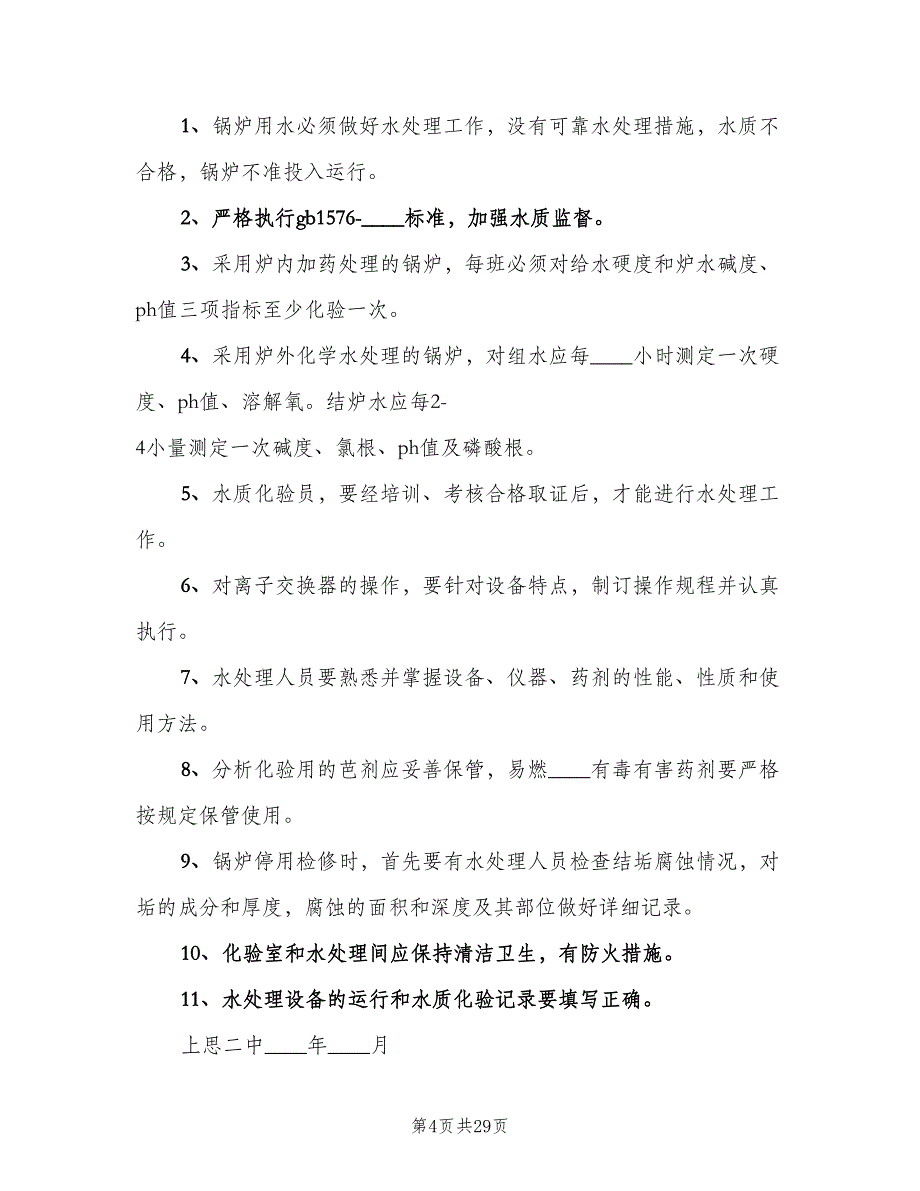 1、锅炉用水必须做好水处理工作，没有可靠水处理措施，水质不
合格，锅炉不准投入运行。
2、严格执行gb1576-____标准，加强水质监督。
3、采用炉内加药处理的锅炉，每班必须对给水硬度和炉水碱度、
ph值三项指标至少化验一次。
4、采用炉外化学水处理的锅炉，对组水应每____小时测定一次硬
度、ph值、溶解氧。结炉水应每2-
4小量测定一次碱度、氯根、ph值及磷酸根。
5、水质化验员，要经培训、考核合格取证后，才能进行水处理工
作。
6、对离子交换器的操作，要针对设备特点，制订操作规程并认真
执行。
7、水处理人员要熟悉并掌握设备、仪器、药剂的性能、性质和使
用方法。
8、分析化验用的芭剂应妥善保管，易燃____有毒有害药剂要严格
按规定保管使用。
9、锅炉停用检修时，首先要有水处理人员检查结垢腐蚀情况，对
垢的成分和厚度，腐蚀的面积和深度及其部位做好详细记录。
10、化验室和水处理间应保持清洁卫生，有防火措施。
11、水处理设备的运行和水质化验记录要填写正确。
上思二中____年____月
第4页共29页